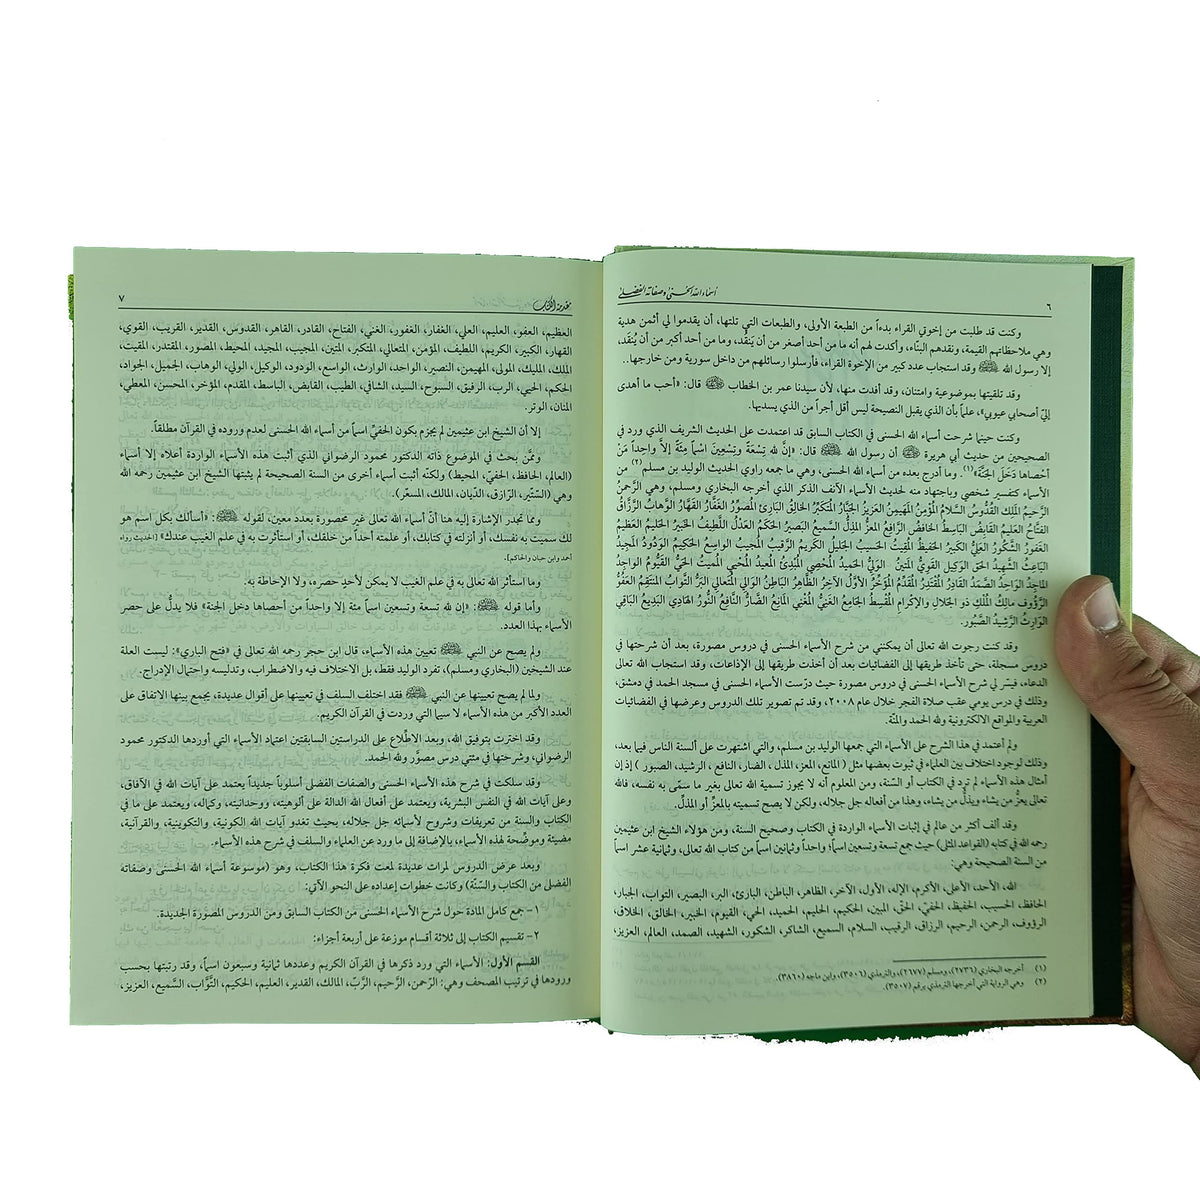 ٦
أسماء الله الحسنى وصفاته الفضلى
وكنت قد طلبت من إخوتي القراء بدءاً من الطبعة الأولى، والطبعات التي تلتها، أن يقدموا لي أثمن هدية
وهي ملاحظاتهم القيمة، ونقدهم البنّاء، وأكدت لهم أنه ما من أحد أصغر من أن يَنقُد، وما من أحد أكبر من أن يُنقَد،
إلا رسول الله ﷺ وقد استجاب عدد كبير من الإخوة القراء، فأرسلوا رسائلهم من داخل سورية ومن خارجها..
وقد تلقيتها بموضوعية وامتنان، وقد أفدت منها، لأن سيدنا عمر بن الخطاب قال: «أحب ما أهدى
إليّ أصحابي عيوبي»، علماً بأن الذي يقبل النصيحة ليس أقل أجراً من الذي يسديها.
وكنت حينما شرحت أسماء الله الحسنى في الكتاب السابق قد اعتمدت على الحديث الشريف الذي ورد في
الصحيحين من حديث أبي هريرة أن رسول الله ﷺ قال: «إنَّ لله تِسْعَةً وَتِسْعِينَ اسْماً مِئَةً إلاَّ واحِداً مَنْ
أحْصاها دَخَلَ الجَنَّةَ»(١). وما أدرج بعده من أسماء الله الحسنى، وهي ما جمعه راوي الحديث الوليد بن مسلم(٢) من
الأسماء كتفسير شخصي وباجتهاد منه لحديث الأسماء الآنف الذكر الذي أخرجه البخاري ومسلم، وهي الرَّحمنُ
الرَّحيمُ المَلِكُ القُدُّوسُ السَّلامُ المُؤْمِنُ المُهَيمِنُ العَزيزُ الجَبَّارُ المُتَكَبِّرُ الخالِقُ البارِئُ المُصَوِّرُ الغَفَّارُ القَهَّارُ الوَهَّابُ الرَّزَّاقُ
الفتَّاحُ العَليمُ القابِضُ الباسِطُ الخافِضُ الرَّافِعُ المعزُّ المذِلُّ السَّميعُ البَصيرُ الحَكَمُ العَدْلُ اللَّطيفُ الخَبيرُ الحَليمُ العَظيمُ
الغَفورُ الشَّكُورُ العَليُّ الكَبيرُ الحَفيظُ المُقيتُ الحَسيبُ الجَليلُ الكَريمُ الرَّقيبُ المُجيبُ الواسِعُ الحَكيمُ الوَدُودُ المَجيدُ
الباعِثُ الشَّهيدُ الحَق الوَكيلُ القَويُّ المَتينُ الوَليُّ الحَميدُ المُحْصي المُبْدِئُ المُعيدُ المُحْيي المُميتُ الحَيُّ القَيُّومُ الواجِدُ
الماجِدُ الواحِدُ الصَّمَدُ القادِرُ المُقْتَدِرُ المُقَدِّمُ المُؤَخِّرُ الأوَّلُ الآخِرُ الظَّاهِرُ الباطِنُ الوَالي المُتَعالي البَرُّ التَّوابُ المنتَقِمُ العَفُوُّ
الرَّؤُوف مالِكُ المُلْكِ ذو الجَلالِ والإكرامِ المُقْسِطُ الجَامِعُ الغَنيُّ المُغْني المَانِعُ الضَّارُّ النَّافِعُ النُّورُ الهَادِي البَديعُ البَاقي
الوَارِثُ الرَّشيدُ الصَّبُور.
وقد كنت رجوت الله تعالى أن يمكنني من شرح الأسماء الحسنى في دروس مصورة، بعد أن شرحتها في
دروس مسجلة، حتى تأخذ طريقها إلى الفضائيات بعد أن أخذت طريقها إلى الإذاعات، وقد استجاب الله تعالى
الدعاء، فيسّر لي شرح الأسماء الحسنى في دروس مصورة حيث درّست الأسماء الحسنى في مسجد الحمد في دمشق،
وذلك في درس يومي عقب صلاة الفجر خلال عام ٢٠٠٨، وقد تم تصوير تلك الدروس وعرضها في الفضائيات
العربية والمواقع الالكترونية ولله الحمد والمنّة.
ولم أعتمد في هذا الشرح على الأسماء التي جمعها الوليد بن مسلم، والتي اشتهرت على ألسنة الناس فيما بعد،
وذلك لوجود اختلاف بين العلماء في ثبوت بعضها مثل ( المانع، المعز، المذل ، الضار، النافع ، الرشيد، الصبور ) إذ إن
أمثال هذه الأسماء لم ترد في الكتاب أو السّنة، ومن المعلوم أنه لا يجوز تسمية الله تعالى بغير ما سمّى به نفسه، فالله
تعالى يعزُّ من يشاء ويذلُّ من يشاء، وهذا من أفعاله جل جلاله، ولكن لا يصح تسميته بالمعزِّ أو المذلِّ.
وقد ألف أكثر من عالم في إثبات الأسماء الواردة في الكتاب وصحيح السنة، ومن هؤلاء الشيخ ابن عثيمين
رحمه الله في كتابه (القواعد المثلى) حيث جمع تسعة وتسعين اسماً؛ واحداً وثمانين اسماً من كتاب الله تعالى، وثمانية عشر اسماً
من السنة الصحيحة وهي:
الله، الأحد، الأعلى، الأكرم، الإله، الأول، الآخر، الظاهر، الباطن، البارئ، البر، البصير، التواب، الجبار،
الحافظ، الحسيب، الحفيظ، الحفيّ، الحقّ، المبين، الحكيم، الحليم، الحميد، الحي، القيوم، الخبير، الخالق، الخلاق،
الرؤوف، الرحمن، الرحيم، الرزاق، الرقيب، السلام، السميع، الشاكر، الشكور، الشهيد، الصمد، العالم، العزيز،
(١) أخرجه البخاري (٢٧٣٦)، ومسلم (٢٦٧٧)، والترمذي (٣٥٠٦)، وابن ماجه (٣٨٦٠).
(٢) وهي الرواية التي أخرجها الترمذي برقم (٣٥٠٧).
مقدمة الكتاب
٧
العظيم، العفو، العليم، العلي، الغفار، الغفور، الغني، الفتاح، القادر، القاهر، القدوس، القدير، القريب، القوي،
القهار، الكبير، الكريم، اللطيف، المؤمن، المتعالي، المتكبر، المتين، المجيب، المجيد، المحيط، المصور، المقتدر، المقيت،
الملك، المليك، المولى، المهيمن، النصير، الواحد، الوارث، الواسع، الودود، الوكيل، الولي، الوهاب، الجميل، الجواد،
الحكم، الحيي، الرب، الرفيق، السبوح، السيد، الشافي، الطيب، القابض، الباسط، المقدم، المؤخر، المحسن، المعطي،
المنان، الوتر.
إلا أن الشيخ ابن عثيمين لم يجزم بكون الحفيّ اسماً من أسماء الله الحسنى لعدم وروده في القرآن مطلقاً.
وممَّن بحث في الموضوع ذاته الدكتور محمود الرضواني الذي أثبت هذه الأسماء الواردة أعلاه إلا أسماء
(العالم، الحافظ، الحفي، المحيط) ولكنّه أثبت أسماء أخرى من السنة الصحيحة لم يثبتها الشيخ ابن عثيمين رحمه الله
وهي (السّتّير، الرّازق، الدّيان، المالك، المسعّر).
ومما تجدر الإشارة إليه هنا أنّ أسماء الله تعالى غير محصورة بعدد معين، لقوله ﷺ: «أسألك بكل اسم هو
لك سميت به نفسك، أو أنزلته في كتابك، أو علمته أحداً من خلقك، أو استأثرت به في علم الغيب عندك» (الحديث رواه
أحمد وابن حبان والحاكم).
وما استأثر الله تعالى به في علم الغيب لا يمكن لأحدٍ حصره، ولا الإحاطة به.
وأما قوله ﷺ: «إن لله تسعة وتسعين اسماً مئة إلا واحداً من أحصاها دخل الجنة» فلا يدلُّ على حصر
الأسماء بهذا العدد.
ولم يصح عن النبي ﷺ تعيين هذه الأسماء، قال ابن حجر رحمه الله تعالى في «فتح الباري»: ليست العلة
عند الشيخين (البخاري ومسلم)، تفرد الوليد فقط، بل الاختلاف فيه والاضطراب، وتدليسه واحتمال الإدراج.
ولما لم يصح تعيينها عن النبي ﷺ فقد اختلف السلف في تعيينها على أقوال عديدة، يجمع بينها الاتفاق على
العدد الأكبر من هذه الأسماء لا سيما التي وردت في القرآن الكريم.
وقد اخترت بتوفيق الله، وبعد الاطِّلاع على الدراستين السابقتين اعتماد الأسماء التي أوردها الدكتور محمود
الرضواني، وشرحتها في مئتي درس مصوَّر ولله الحمد.
وقد سلكت في شرح هذه الأسماء الحسنى والصفات الفضلى أسلوباً جديداً يعتمد على آيات الله في الآفاق،
وعلى آيات الله في النفس البشرية، ويعتمد على أفعال الله الدالة على ألوهيته، ووحدانيته، وكماله، ويعتمد على ما في
الكتاب والسنة من تعريفات وشروح لأسمائه جل جلاله، بحيث تغدو آيات الله الكونية، والتكوينية، والقرآنية،
مضيئة وموضّحة لهذه الأسماء، بالإضافة إلى ما ورد عن العلماء والسلف في شرح هذه الأسماء.
وبعد عرض الدروس لمرات عديدة لمعت فكرة هذا الكتاب، وهو (موسوعة أسماء الله الحسنى وصفاته
الفضلى من الكتاب والسّنّة) وكانت خطوات إعداده على النحو الآتي:
١- جمع كامل المادة حول شرح الأسماء الحسنى من الكتاب السابق ومن الدروس المصورة الجديدة.
٢- تقسيم الكتاب إلى ثلاثة أقسام موزعة على أربعة أجزاء:
القسم الأول: الأسماء التي ورد ذكرها في القرآن الكريم وعددها ثمانية وسبعون اسماً، وقد رتبتها بحسب
ورودها في ترتيب المصحف وهي: الرّحمن، الرّحيم، الرّبّ، المالك، القدير، العليم، الحكيم، التَّوَّاب، السَّميع، العزيز،